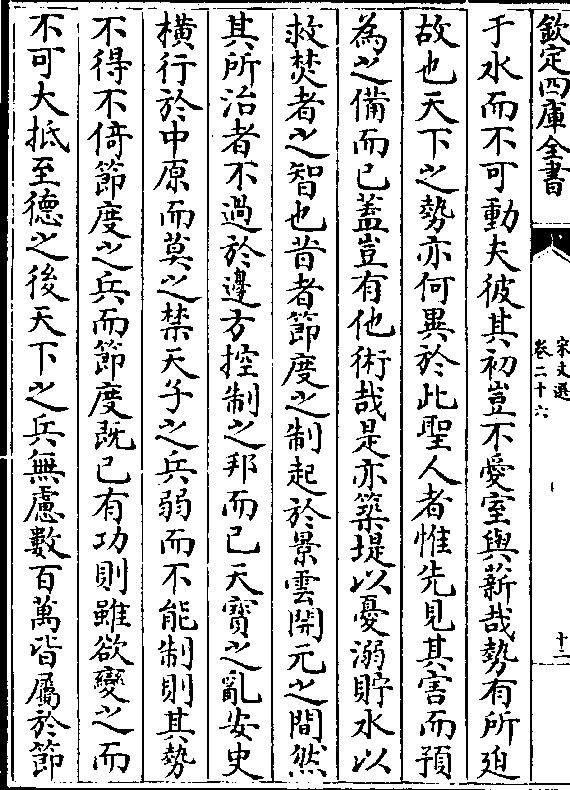 欽定四庫全書
宋文選
卷二十六
十二
于水而不可動夫彼其初豈不愛室與薪哉勢有所迫
故也天下之勢亦何異於此聖人者惟先見其害而預
為之備而已蓋豈有他術哉是亦築堤以憂溺貯水以
救焚者之智也昔者節度之制起於景雲開元之間然
其所治者不過於邊方控制之邦而已天寳之亂安史
橫行於中原而莫之禁天子之兵弱而不能制則其勢
不得不倚節度之兵而節度既已有功則雖欲變之而
不可大抵至德之後天下之兵無慮數百萬皆屬於節